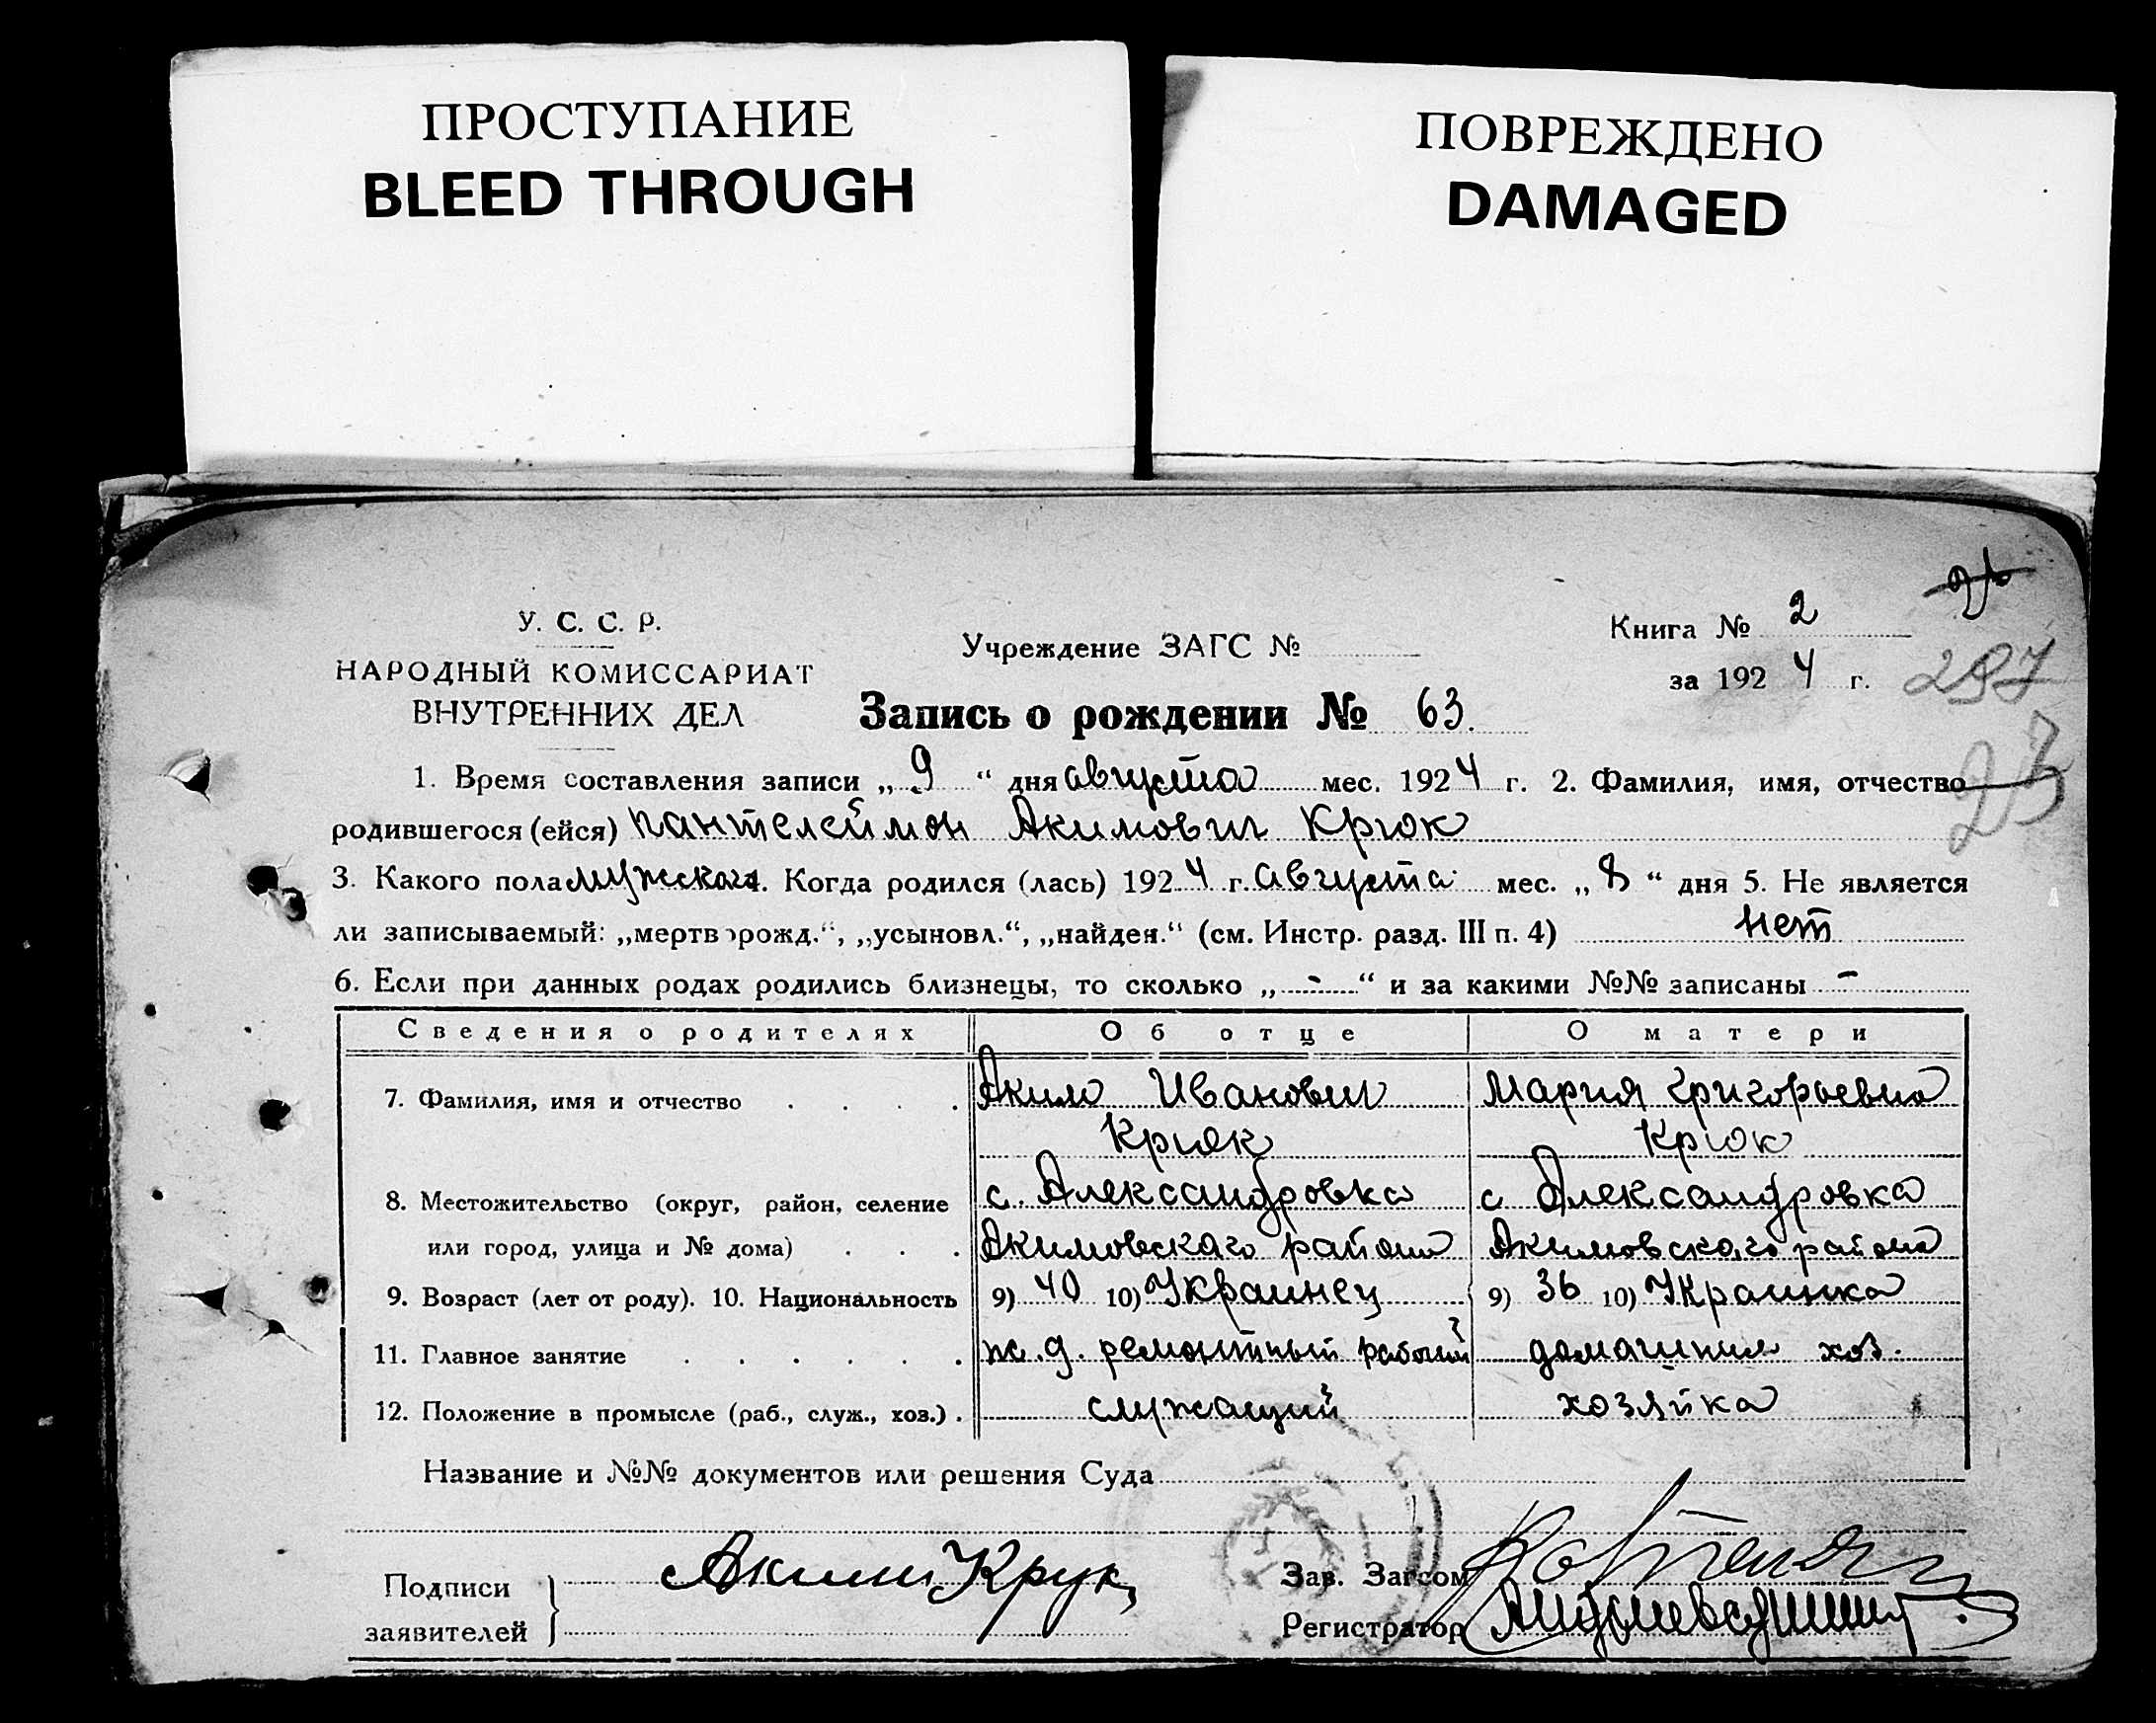 ПРОСТУПАНИЕ
BLEED THROUGH
ПОВРЕЖДЕНО
DAMAGED
У. С. С. Р.
НАРОДНЫЙ КОМИССАРИАТ
ВНУТРЕННИХ ДЕЛ
Учреждение ЗАГС №
Книга № 2
за 1924 г.
297
23
Запись о рождении № 63.
1. Время составления записи „ 9 “ дня августа мес. 1924 г. 2. Фамилия, имя, отчество
родившегося (ейся) Пантелеймон Акимович Крюк
3. Какого пола мужского 4. Когда родился (лась) 1924 г. августа мес. „ 8 “ дня 5. Не является
ли записываемый: „мерторожд.“, „усыновл.“, „найден.“ (см. Инстр. разд. III п. 4) нет
6. Если при данных родах родились близнецы, то сколько „ - “ и за какими №№ записаны -
Сведения о родителях Об отце О матери
7. Фамилия, имя и отчество . . . . Аким Иванович Мария Григорьевна
Крюк Крюк
8. Местожительство (округ, район, селение с. Александровка с Александровка
или город, улица и № дома) . . . Акимовского района Акимовского района
9. Возраст (лет от роду). 10. Национальность 9) 40 10) Украинец 9) 36 10) Украинка
11. Главное занятие . . . . . . ж.д. ремонтный рабочий домашнее хоз.
12. Положение в промысле (раб., служ., хоз.) . служащий хозяйка
Название и №№ документов или решения Суда
Подписи
заявителей
Аким Крук
Зав. Загсом
Регистратор